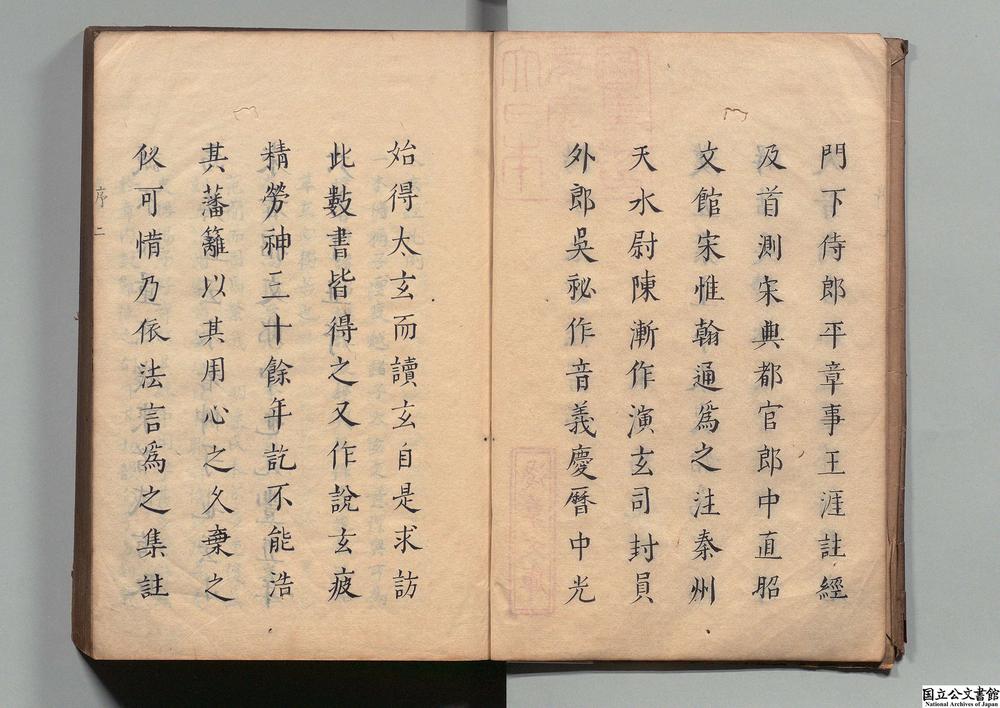 門下侍郎平章事王涯註經
及首測宋典都官郎中直昭
文館宋惟翰通為之注秦州
天水尉陳漸作演玄司封員
外郎吳祕作音義慶曆中光
始得太玄而讀玄自是求訪
此數書皆得之又作說玄疲
精勞神三十餘年訖不能浩
其藩籬以其用心之久棄之
似可惜乃依法言為之集註
序 二
国立公文書館
National Archives of Japan